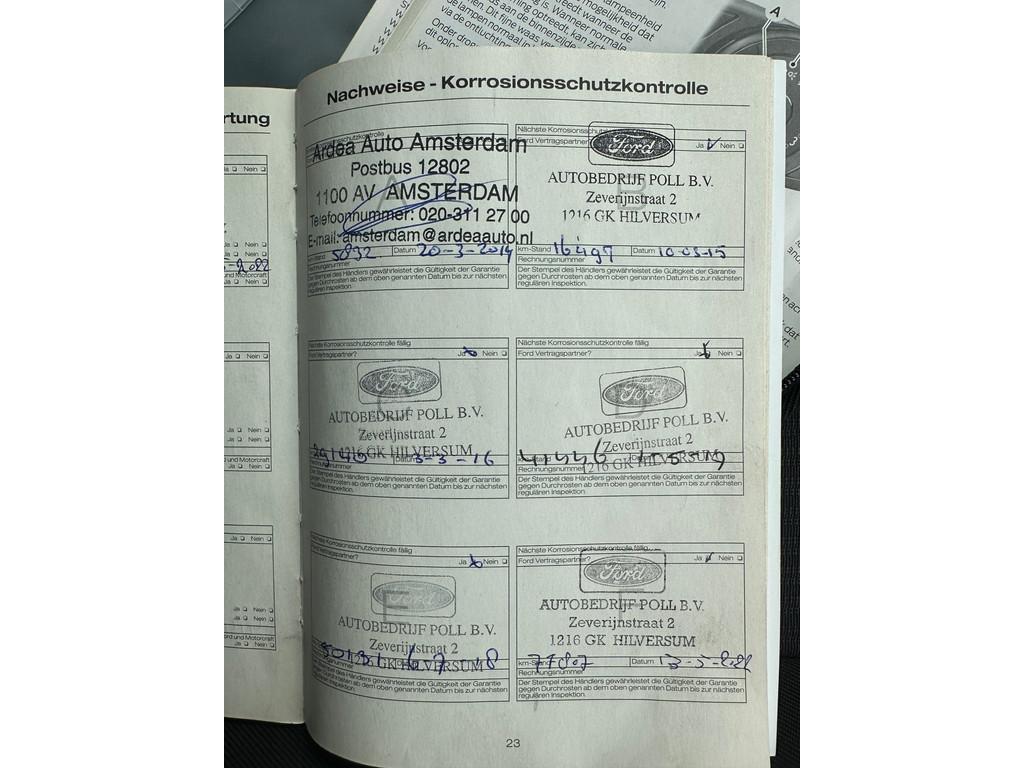 lampeenheid
mogelijkheid dat
is. Wanneer
Nachweise - Korrosionsschutzkontrolle
rtung
Ardea Auto Amsterdam
Postbus 12802
1100 AV AMSTERDAM
Telefoonnummer: 020-311 27 00
E-mail: amsterdam@ardeaauto.nl
km-Stand 5832 Datum 20-3-2014
Rechnungsnummer
Der Stempel des Händlers gewährleistet die Gültigkeit der Garantie
gegen Durchrosten ab dem oben genannten Datum bis zur nächsten
regulären Inspektion.
Ford Vertragspartner? Ja Nein
Ford
AUTOBEDRIJF POLL B.V.
Zeverijnstraat 2
1216 GK HILVERSUM
km-Stand 16497 Datum 10-03-15
Rechnungsnummer
Der Stempel des Händlers gewährleistet die Gültigkeit der Garantie
gegen Durchrosten ab dem oben genannten Datum bis zur nächsten
regulären Inspektion.
Nächste Korrosionsschutzkontrolle fällig
Ford Vertragspartner? Ja Nein
Ford
AUTOBEDRIJF POLL B.V.
Zeverijnstraat 2
1216 GK HILVERSUM
Datum 3-3-16
Rechnungsnummer
Der Stempel des Händlers gewährleistet die Gültigkeit der Garantie
gegen Durchrosten ab dem oben genannten Datum bis zur nächsten
regulären Inspektion.
Nächste Korrosionsschutzkontrolle fällig
Ford Vertragspartner? Ja Nein
Ford
D
AUTOBEDRIJF POLL B.V.
Zeverijnstraat 2
1216 GK HILVERSUM
41446
Rechnungsnummer
Der Stempel des Händlers gewährleistet die Gültigkeit der Garantie
gegen Durchrosten ab dem oben genannten Datum bis zur nächsten
regulären Inspektion.
Nächste Korrosionsschutzkontrolle fällig
Ford Vertragspartner? Ja Nein
Ford
E
AUTOBEDRIJF POLL B.V.
Zeverijnstraat 2
1216 GK HILVERSUM
Rechnungsnummer
Der Stempel des Händlers gewährleistet die Gültigkeit der Garantie
gegen Durchrosten ab dem oben genannten Datum bis zur nächsten
regulären Inspektion.
Nächste Korrosionsschutzkontrolle fällig
Ford Vertragspartner? Ja Nein
Ford
F
AUTOBEDRIJF POLL B.V.
Zeverijnstraat 2
1216 GK HILVERSUM
km-Stand 77807 Datum 13-5-2022
Rechnungsnummer
Der Stempel des Händlers gewährleistet die Gültigkeit der Garantie
gegen Durchrosten ab dem oben genannten Datum bis zur nächsten
regulären Inspektion.
23